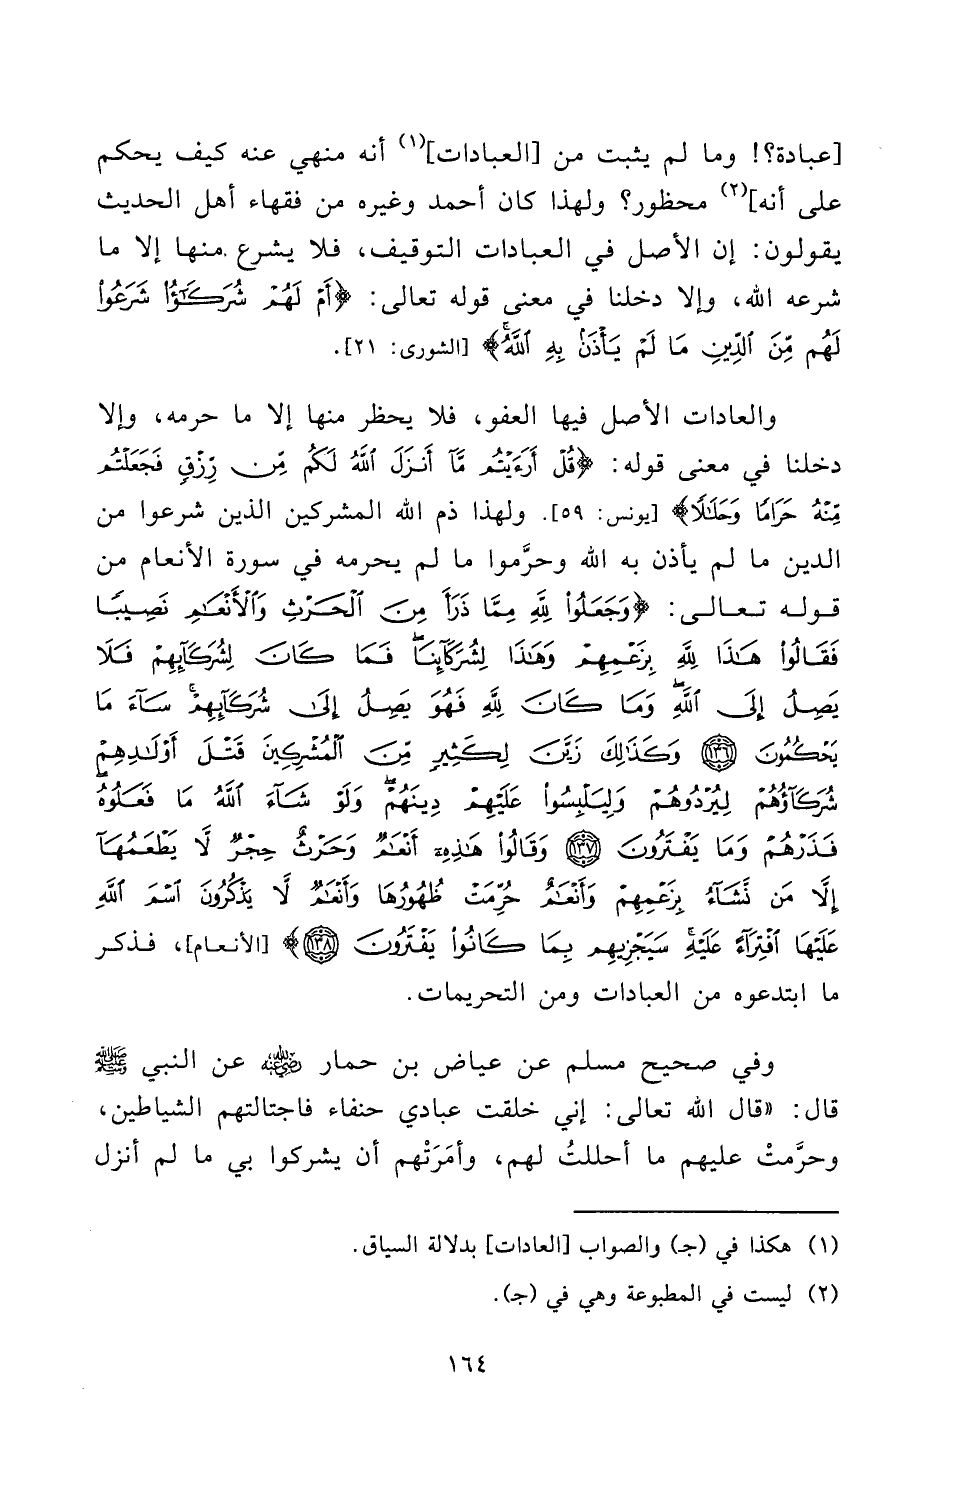 [عبادة؟! وما لم يثبت من [العبادات](١) أنه منهي عنه كيف يحكم
على أنه](٢) محظور؟ ولهذا كان أحمد وغيره من فقهاء أهل الحديث
يقولون: إن الأصل في العبادات التوقيف، فلا يشرع منها إلا ما
شرعه الله، وإلا دخلنا في معنى قوله تعالى: ﴿أَمْ لَهُمْ شُرَكَٰٓؤُاْ شَرَعُواْ
لَهُم مِّنَ ٱلدِّينِ مَا لَمْ يَأْذَنۢ بِهِ ٱللَّهُۚ﴾ [الشورى: ٢١].
والعادات الأصل فيها العفو، فلا يحظر منها إلا ما حرمه، وإلا
دخلنا في معنى قوله: ﴿قُلْ أَرَءَيْتُم مَّآ أَنزَلَ ٱللَّهُ لَكُم مِّن رِّزْقٍ فَجَعَلْتُم
مِّنْهُ حَرَامًا وَحَلَٰلًا﴾ [يونس: ٥٩]. ولهذا ذم الله المشركين الذين شرعوا من
الدين ما لم يأذن به الله وحرَّموا ما لم يحرمه في سورة الأنعام من
قوله تعالى: ﴿وَجَعَلُواْ لِلَّهِ مِمَّا ذَرَأَ مِنَ ٱلْحَرْثِ وَٱلْأَنْعَٰمِ نَصِيبًا
فَقَالُواْ هَٰذَا لِلَّهِ بِزَعْمِهِمْ وَهَٰذَا لِشُرَكَآئِنَاۖ فَمَا كَانَ لِشُرَكَآئِهِمْ فَلَا
يَصِلُ إِلَى ٱللَّهِۖ وَمَا كَانَ لِلَّهِ فَهُوَ يَصِلُ إِلَىٰ شُرَكَآئِهِمْۗ سَآءَ مَا
يَحْكُمُونَ ١٣٦ وَكَذَٰلِكَ زَيَّنَ لِكَثِيرٍ مِّنَ ٱلْمُشْرِكِينَ قَتْلَ أَوْلَٰدِهِمْ
شُرَكَآؤُهُمْ لِيُرْدُوهُمْ وَلِيَلْبِسُواْ عَلَيْهِمْ دِينَهُمْۖ وَلَوْ شَآءَ ٱللَّهُ مَا فَعَلُوهُۖ
فَذَرْهُمْ وَمَا يَفْتَرُونَ ١٣٧ وَقَالُواْ هَٰذِهِۦٓ أَنْعَٰمٌ وَحَرْثٌ حِجْرٌ لَّا يَطْعَمُهَآ
إِلَّا مَن نَّشَآءُ بِزَعْمِهِمْ وَأَنْعَٰمٌ حُرِّمَتْ ظُهُورُهَا وَأَنْعَٰمٌ لَّا يَذْكُرُونَ ٱسْمَ ٱللَّهِ
عَلَيْهَا ٱفْتِرَآءً عَلَيْهِۚ سَيَجْزِيهِم بِمَا كَانُواْ يَفْتَرُونَ ١٣٨﴾ [الأنعام]، فذكر
ما ابتدعوه من العبادات ومن التحريمات.
وفي صحيح مسلم عن عياض بن حمار رضي الله عنه عن النبي ﷺ
قال: «قال الله تعالى: إني خلقت عبادي حنفاء فاجتالتهم الشياطين،
وحرَّمتْ عليهم ما أحللتُ لهم، وأمَرَتْهم أن يشركوا بي ما لم أنزل
(١) هكذا في (جـ) والصواب [العادات] بدلالة السياق.
(٢) ليست في المطبوعة وهي في (جـ).
١٦٤